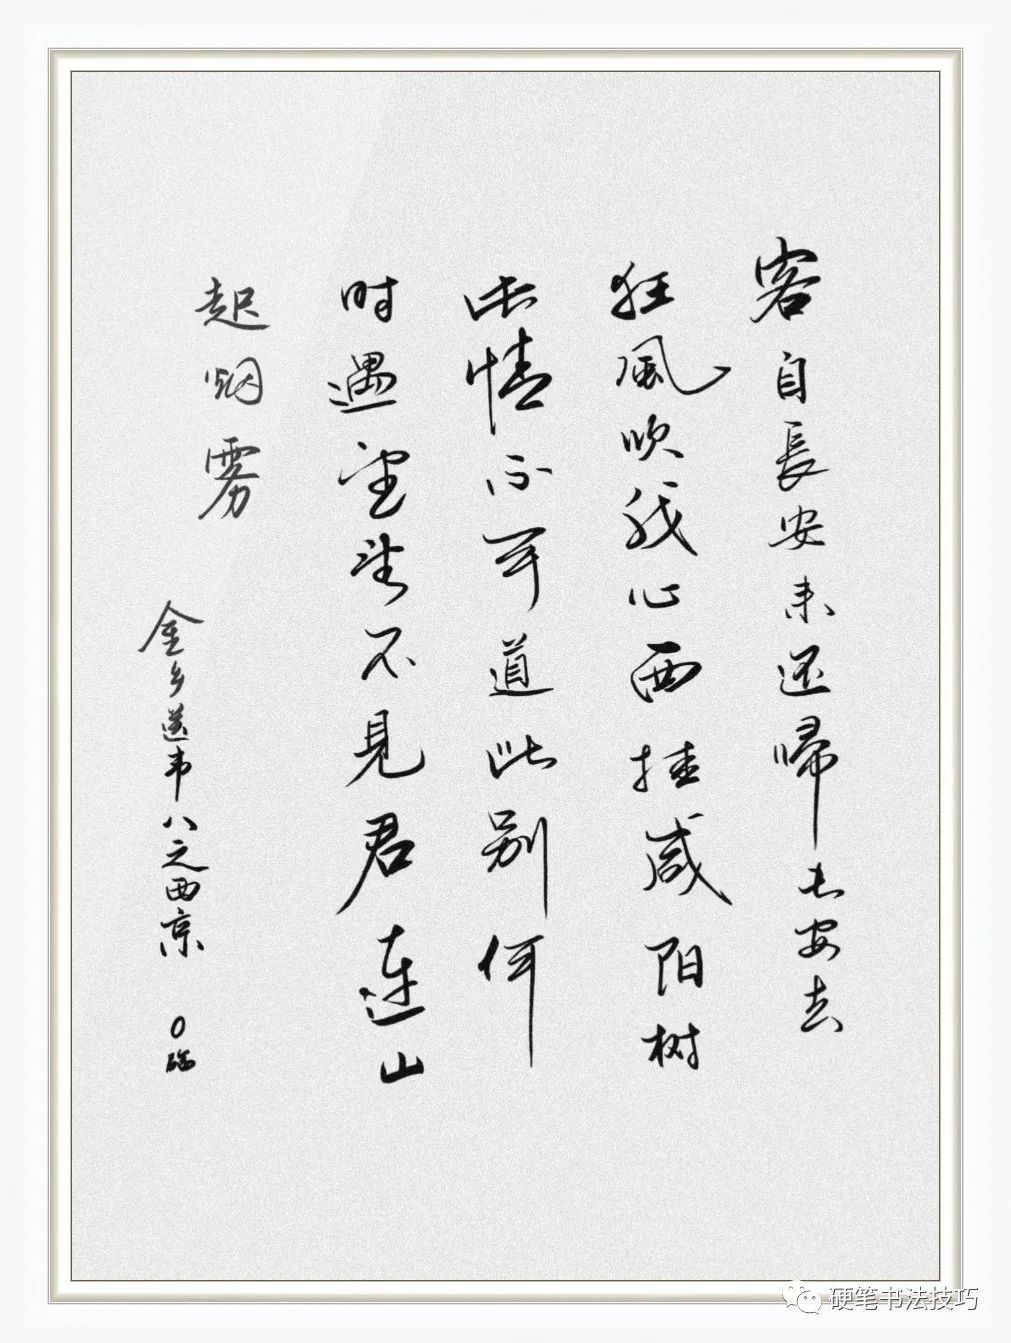 客自長安来还帰长安去
狂風吹我心西挂咸阳树
此情不可道此别何
时遇望望不見君连山
起烟雾
金乡送韦八之西京 〇临
硬笔书法技巧